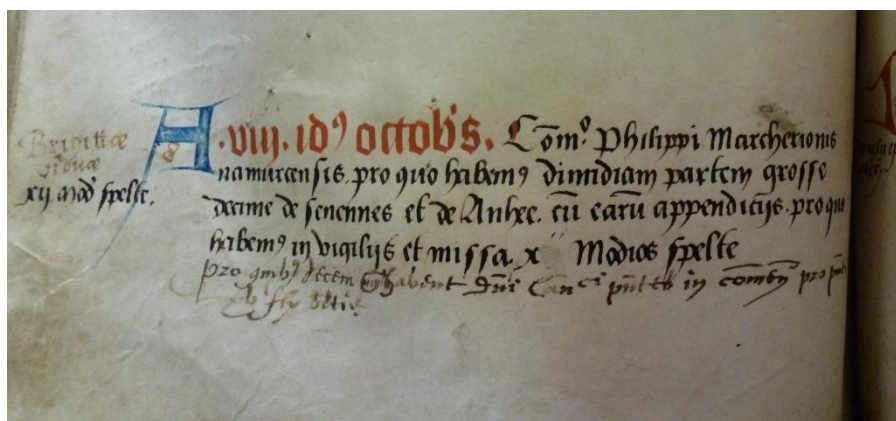 Brigittae
viduæ
xij mod spelte.
A
8
.viij. idꝰ octobꝭs. Com̄º. Philippi Marcherionis
namurcensis. pro quo habemꝰ dimidiam partem grosse
decime de senennes et de Anhee. cū earū appendicijs. pro quo
habemꝰ in vigilijs et missa. x Modios spelte
pro qmbꝰ decem habent Dn̄i Canci pn̄tes in com̄en pro